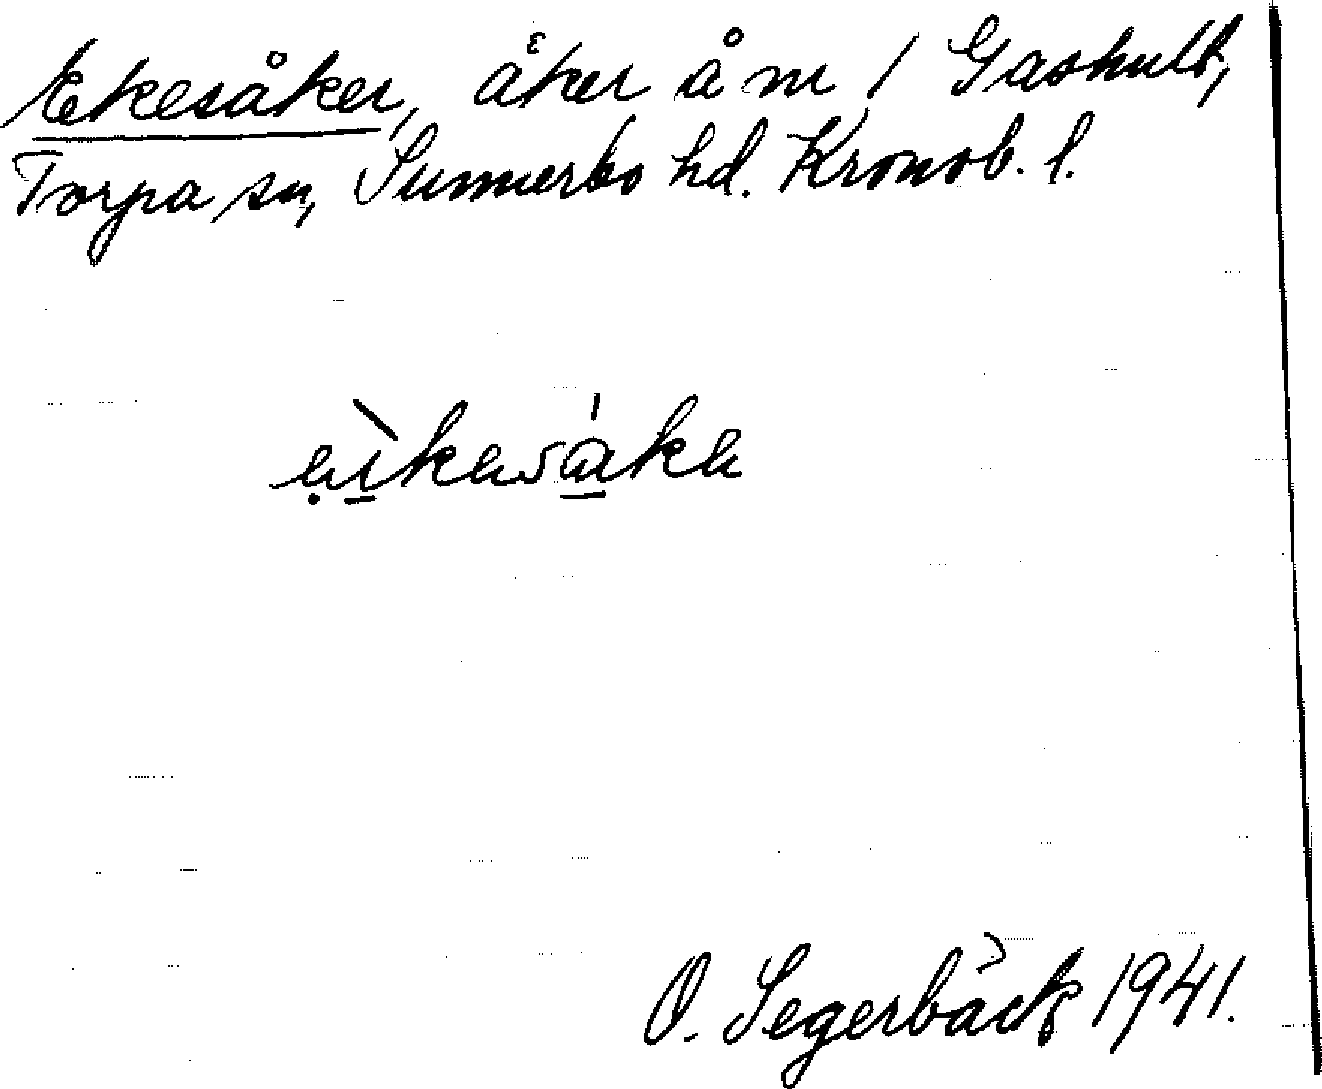 Ekesåker, åker å nr 1 Gashult,
Torpa sn, Sunnerbo hd. Kronob. l.
O. Segerbäck 1941.